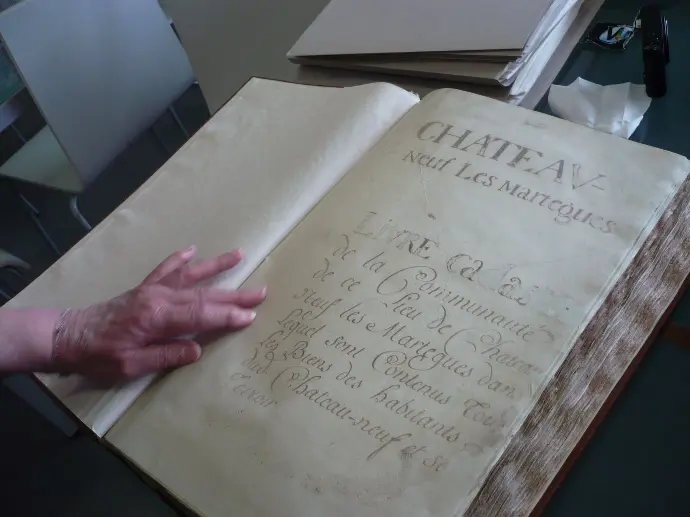 CHATEAV-
Neuf Les Martegues
LIVRE
de la Communauté
de ce Lieu de Chatea
neuf les Martegues dan
lequel sont Contenus
les Biens des habitants
du Chateau-neuf et se
Teroir